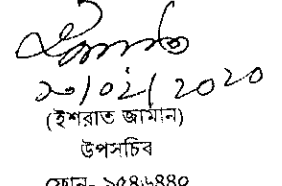 ২০/০২/2020
(ইশরাত জামান)
উপসচিব
ফোন- ৯৫৪৬৪৪০